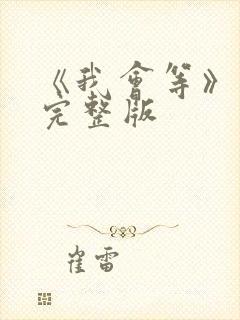 《我會等》
完整版
崔雷